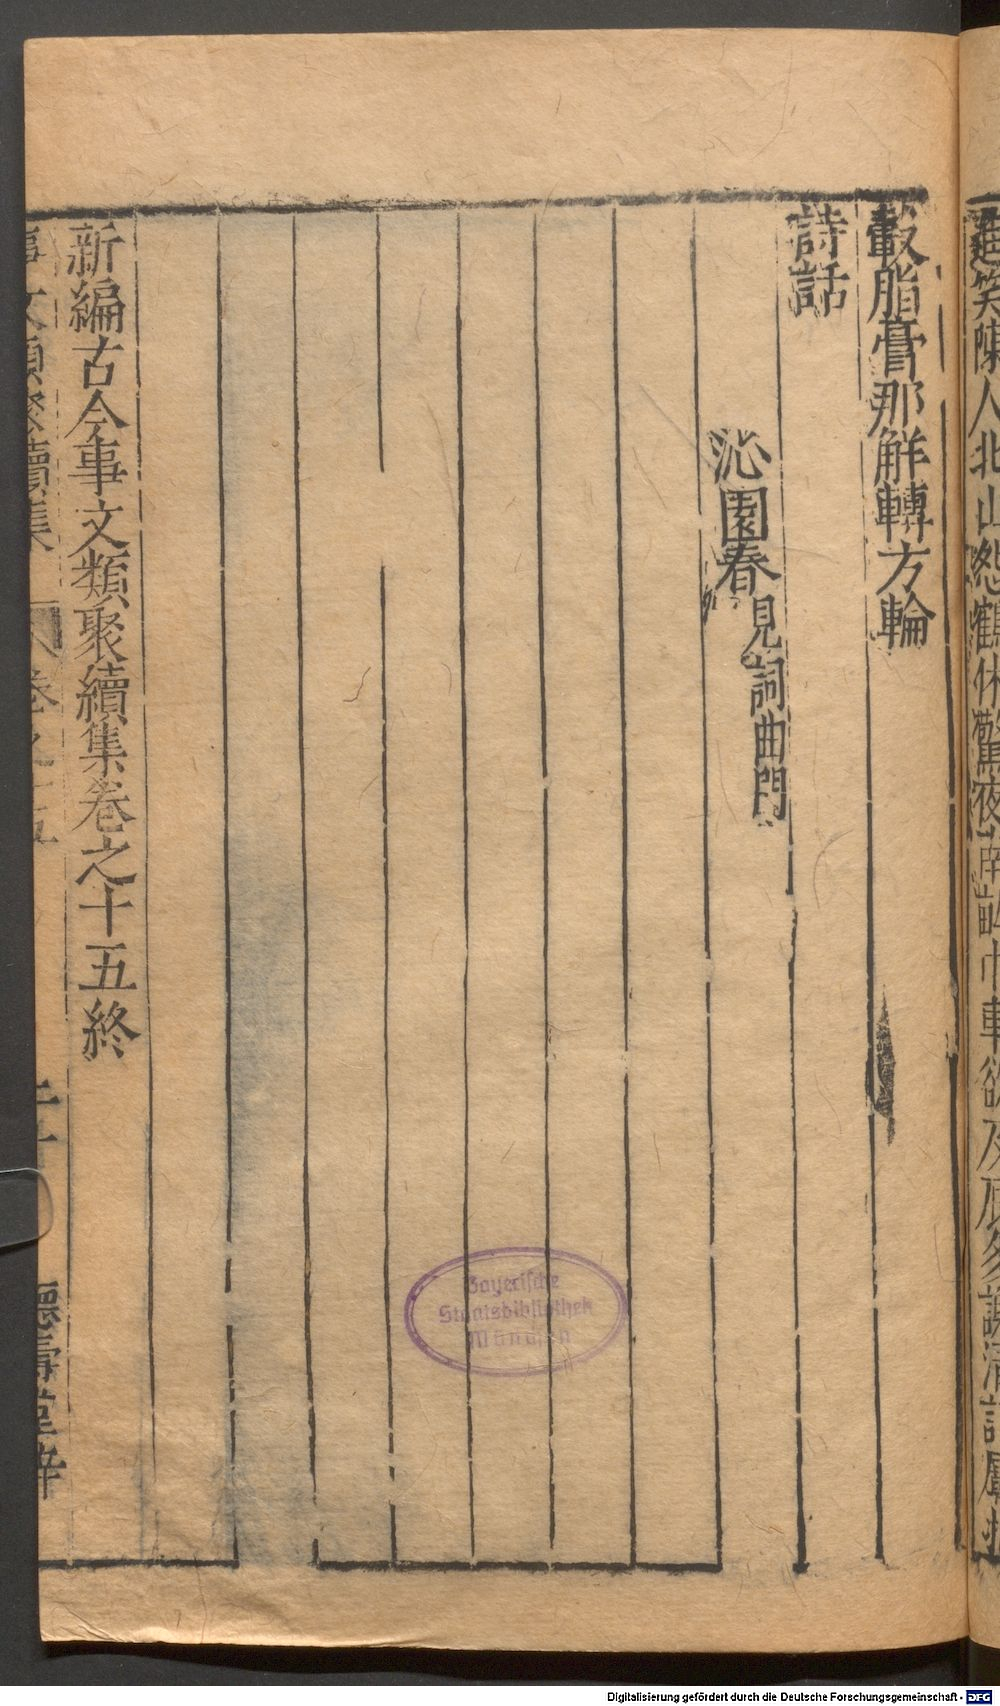 追笑陳人北山怨鶴休驚夜南畝巾車欲及
轂脂膏那解轉方輪
詩話
沁園春見詞曲門
新編古今事文類聚續集卷之十五終
事文類聚續集 卷之十五 二十 德壽堂梓
Bayerische
Staatsbibliothek
München
Digitalisierung gefördert durch die Deutsche Forschungsgemeinschaft - DFG